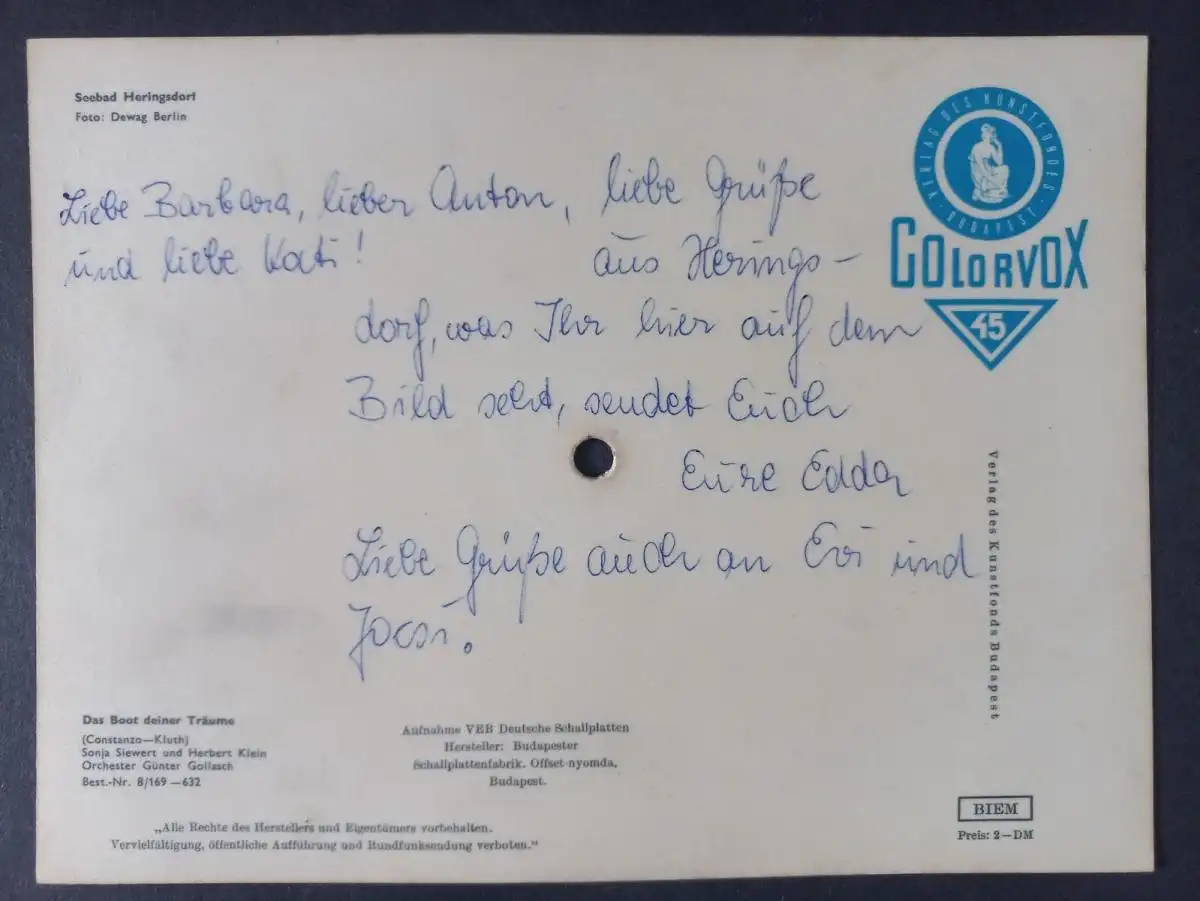 Seebad Heringsdorf
Foto: Dewag Berlin
VERLAG DES KUNSTFONDES
BUDAPEST
COLORVOX
45
Liebe Barbara, lieber Anton,
und liebe Kati!
liebe Grüße
aus Herings-
dorf, was Ihr hier auf dem
Bild seht, sendet Euch
Eure Edda
Liebe Grüße auch an Evi und
Jocsi.
Verlag des Kunstfonds Budapest
Das Boot deiner Träume
(Constanzo—Kluth)
Sonja Siewert und Herbert Klein
Orchester Günter Gollasch
Best.-Nr. 8/169—632
Aufnahme VEB Deutsche Schallplatten
Hersteller: Budapester
Schallplattenfabrik. Offset-nyomda,
Budapest.
„Alle Rechte des Herstellers und Eigentümers vorbehalten.
Vervielfältigung, öffentliche Aufführung und Rundfunksendung verboten."
BIEM
Preis: 2—DM